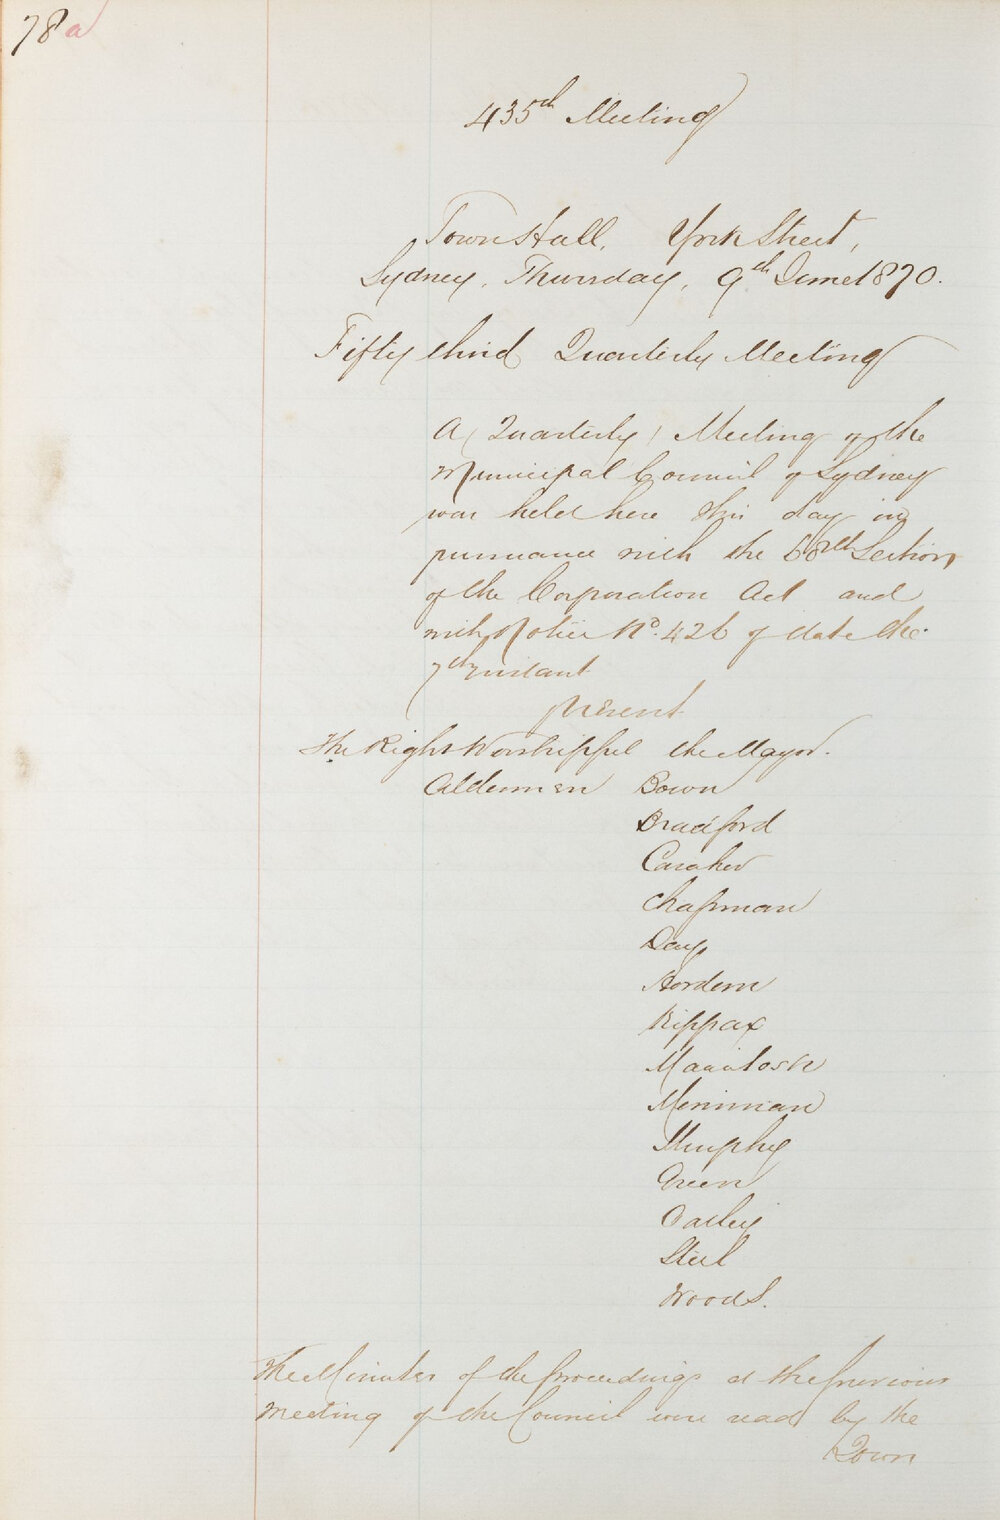 78a
435th Meeting
Town Hall, York Street,
Sydney, Thursday, 9th June 1870.
Fifty third Quarterly Meeting
A (Quarterly) Meeting of the
Municipal Council of Sydney
was held here this day in
pursuance with the 68th Section
of the Corporation Act and
with Notice No. 426 of date the
7th instant
present
The Right Worshipful the Mayor.
Aldermen Bown
Bradford
Caraher
Chapman
Day
Hordern
Kippax
Macintosh
Merriman
Murphy
Green
Oatley
Steel
Woods.
The Minutes of the proceedings at the previous
meeting of the Council were read by the
Town